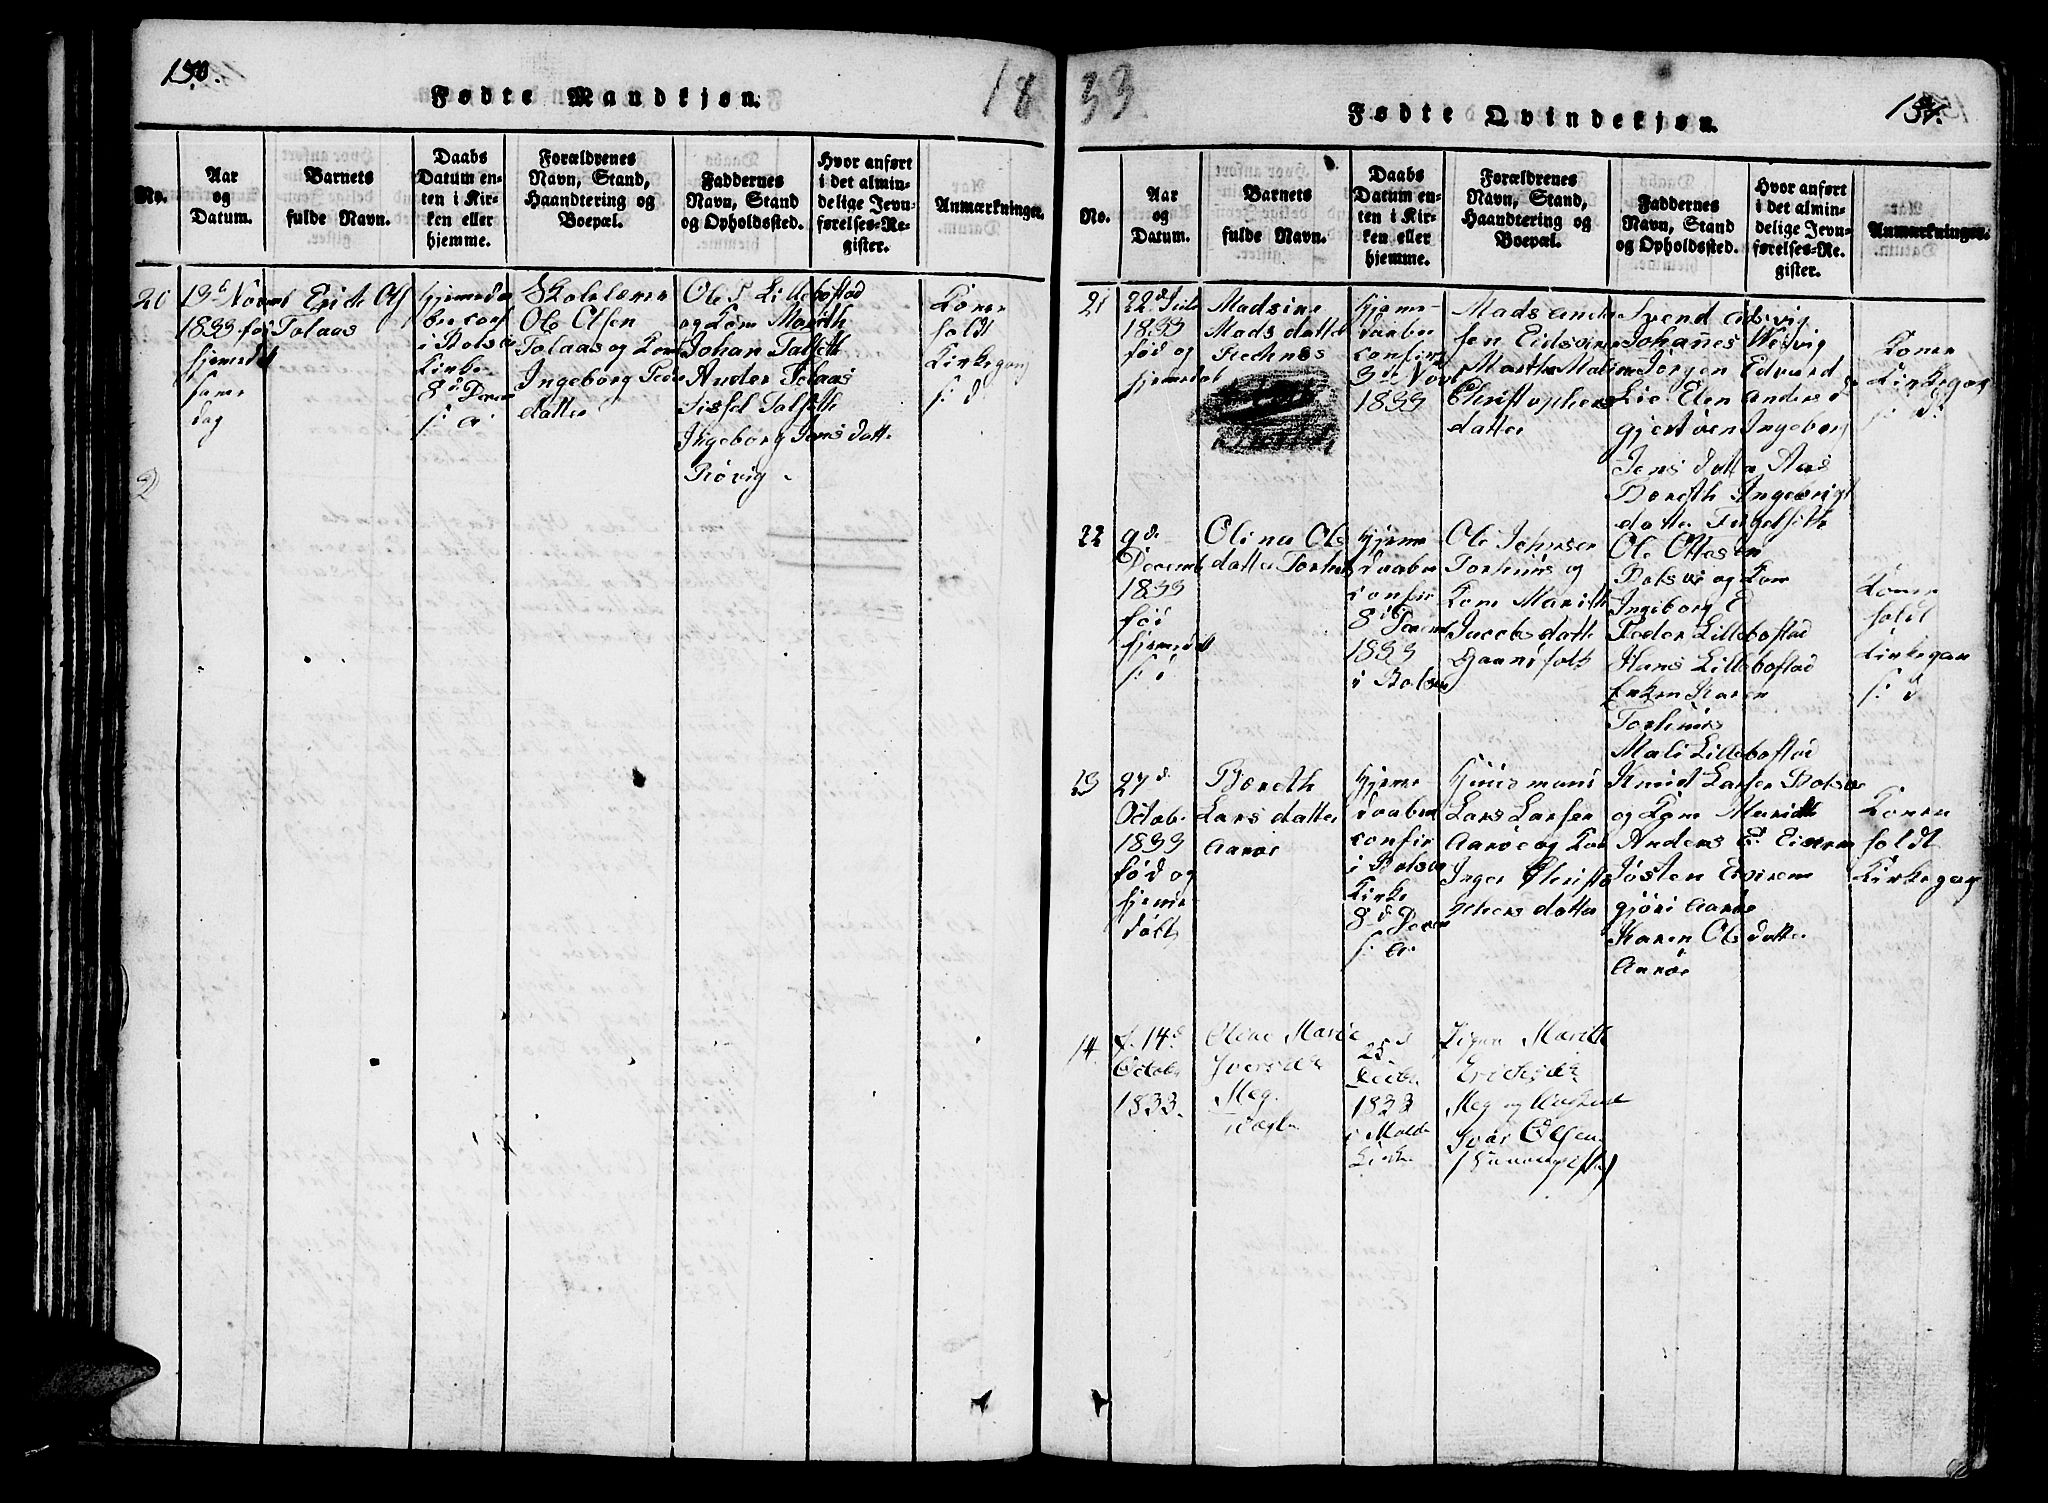 150.
Fødte Mandkjøn.
18
No.
Aar
og
Datum.
Barnets
fulde Navn.
Daabs
Datum en-
ten i Kir-
ken eller
hjemme.
Forældrenes
Navn, Stand,
Haandtering og
Boepæl.
Faddernes
Navn, Stand
og Opholdssted.
Hvor anført
i det almin-
delige Jevn-
førelses-Re-
gister.
Anmærkninger.
20
13d Novmb
1833 fød
hjemedøbt
same
dag
Erik Ols
Tolaas
hjemeda
be conf
i Bolsø
Kirke
8d Decem
s: a:
Skolelærer
Ole Olsen
Tolaas og Kone
Ingeborg Peders
datter
Ole P Lillebostad
og Kone Marith
Johan Talseth
Ander Tolaas
Sissel Talseth
Ingeborg Jens datter
Røvig
Konen
holdt
Kirkegang
s: d:
33
Fødte Qvindekjøn.
151.
No.
Aar
og
Datum.
Barnets
fulde Navn.
Daabs
Datum en-
ten i Kir-
ken eller
hjemme.
Forældrenes
Navn, Stand,
Haandtering og
Boepæl.
Faddernes
Navn, Stand
og Opholdssted.
Hvor anført
i det almin-
delige Jevn-
førelses-Re-
gister.
Anmærkninger.
21
22d
1833
fød og
hjemedøbt
Madsine
Mads datter
hjeme-
daaben
confir
3d Novb
1833
Mads Ander
sen
Marth Malene
Christophers
datter
Svend
Johanes
Jørgen Edvard
Lie Elen Anders d
Ingeborg
Jens datter Aas
Bereth Ingebrigt
datter
Konen
Kirkegang
s: d:
22
9d
Decemb
1833
fød
hjemedøbt
s: d
Olina Ols
datter Torhuus
hjeme
daaben
confir
8d Decemb
1833
i Bolsø
Ole Johnsen
Torhuus og
Kone Marith
Jacobs datter
Gaardfolk
Ole Ottesen
Bolsøe og Kone
Ingeborg E
Peder Lillebostad
Hans Lillebostad
Enken Karen
Torhuus
Mali Lillebostad
Konen
holdt
Kirkegan
s: d
23
27d
Octob
1833
fød og
hjeme
døbt
Bereth
Lars datter
Aarøe
hjeme
daaben
confir
i Bolsø
Kirke
8d Decem
s: a:
Huusmand
Lars Larsen
Aarøe og Kone
Inger Christo
phers datter
Knud Larsen Bolsøe
og Kone Marith
Anders E. Eierem
Josten Eierem
gjøri Aarøe
Karen Ols datter
Aarøe
Konen
holdt
Kirkegang
14
f. 14d
Octobr
1833.
Oline Marie
Iversdtr
Meg.
25d
Decbr
1833
i Molde
Kirke
Pigen Marith
Erichsdtr
Meg og Ungkarl
Iver Olsen